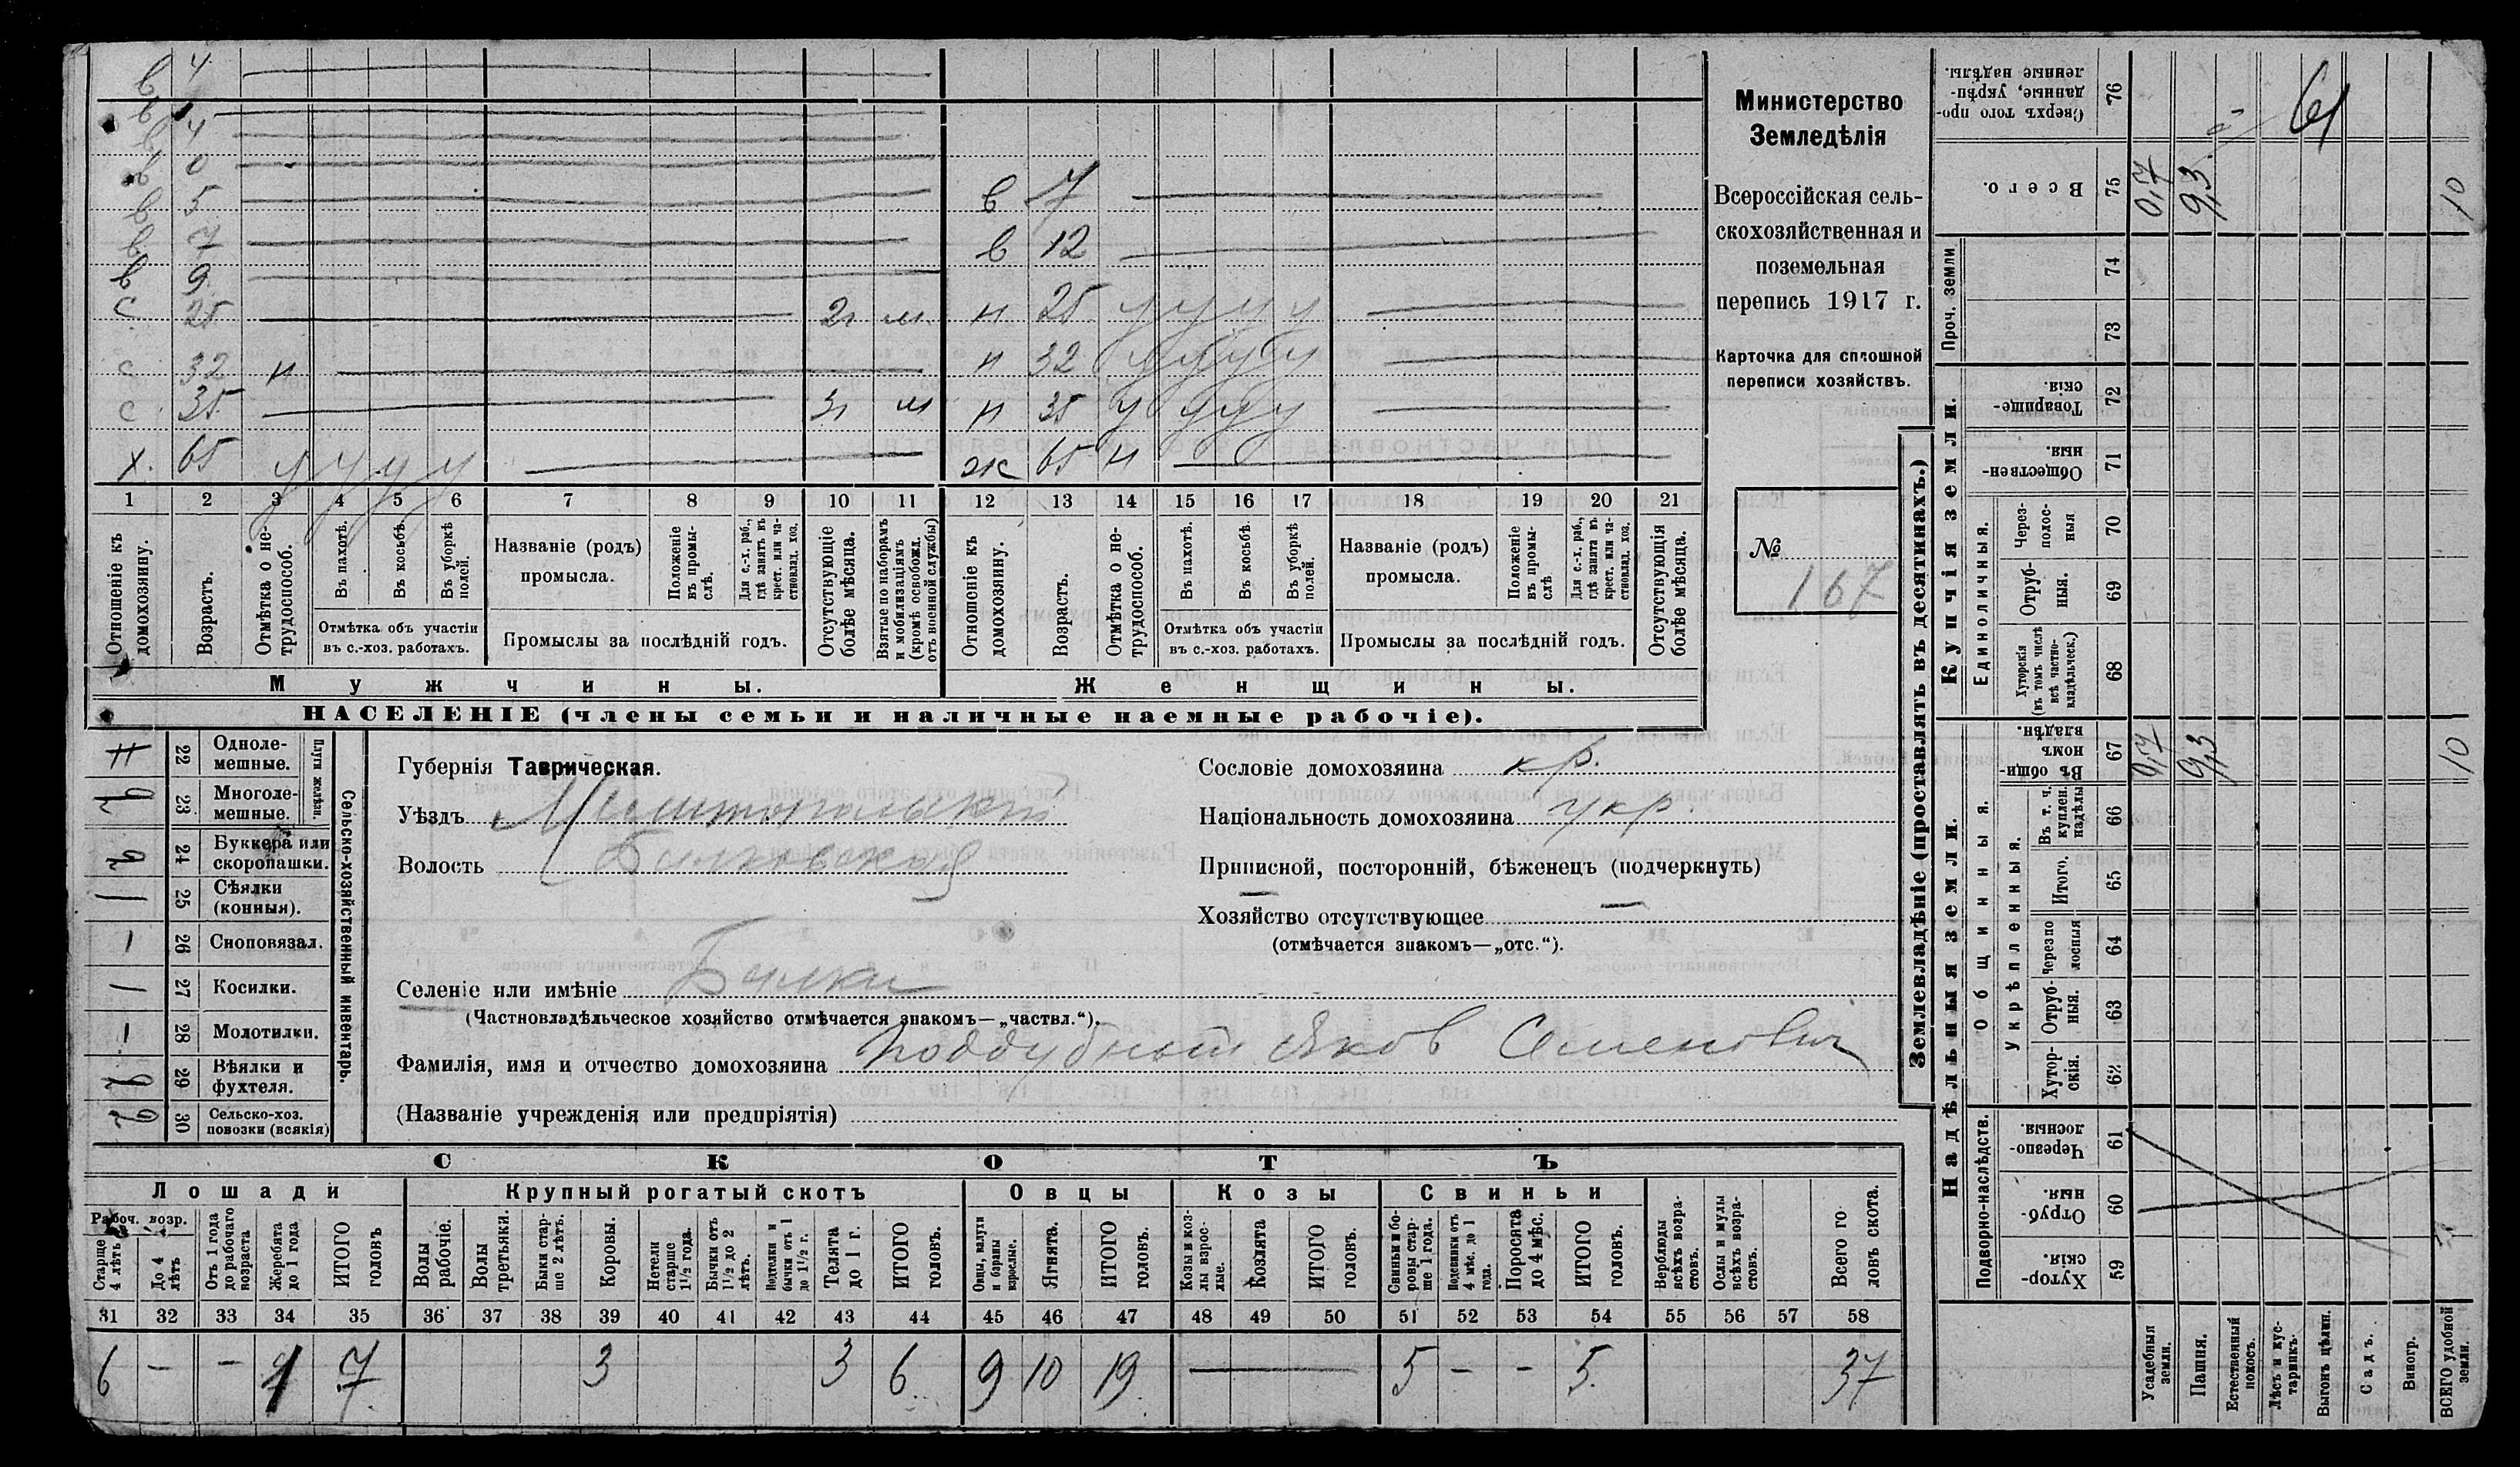 в 4
в 1
в 4
в 0
в 5 в 7
в 7 в 12
в 9
с 25 2г м н 25 у у у у
с 32 н н 32 у у у у
с 35 3г м н 35 у у у у
х. 65 у у у у ж 65 н
1 2 3 4 5 6 7 8 9 10 11 12 13 14 15 16 17 18 19 20 21
Отношеніе къ домохозяину.
Возрастъ.
Отмѣтка о не-трудоспособ.
Въ пахотѣ.
Въ косьбѣ.
Въ уборкѣ полей.
Отмѣтка объ участіи
въ с.-хоз. работахъ.
Названіе (родъ)
промысла.
Положеніе въ промы-слѣ.
Для с.-х. раб., гдѣ занятъ въ крест. или ча-стновлад. хоз.
Промыслы за послѣдній годъ.
Отсутствующіе болѣе мѣсяца.
Взятые по наборамъ и мобилизаціямъ (кромѣ освобожд. отъ военной службы)
Отношеніе къ домохозяину.
Возрастъ.
Отмѣтка о не-трудоспособ.
Въ пахотѣ.
Въ косьбѣ.
Въ уборкѣ полей.
Отмѣтка объ участіи
въ с.-хоз. работахъ.
Названіе (родъ)
промысла.
Положеніе въ промы-слѣ
Для с.-х. раб., гдѣ занята въ крест. или ча-стновлад. хоз.
Промыслы за послѣдній годъ.
Отсутствующія болѣе мѣсяца.
Мужчины. Женщины.
НАСЕЛЕНІЕ (члены семьи и наличные наемные рабочіе).
Министерство
Земледѣлія
Всероссійская сель-
скохозяйственная и
поземельная
перепись 1917 г.
Карточка для сплошной
переписи хозяйствъ.
№
167
Сельско-хозяйственный инвентарь.
Плуги желѣзн.
22 Одноле-мешные.
23 Многоле-мешные.
24 Буккера или скоропашки.
1 25 Сѣялки (конныя).
– 26 Сноповязал.
1 27 Косилки.
– 28 Молотилки.
29 Вѣялки и фухтеля.
30 Сельско-хоз. повозки (всякія)
Губернія Таврическая.
Уѣздъ Мелитопольскій
Волость Балковская
Сословіе домохозяина кр.
Національность домохозяина укр.
Приписной, посторонній, бѣженецъ (подчеркнуть)
Хозяйство отсутствующее —
(отмѣчается знакомъ—„отс.“).
Селеніе или имѣніе Балки
(Частновладѣльческое хозяйство отмѣчается знакомъ—„частвл.“).
Фамилія, имя и отчество домохозяина Поддубный Яков Семенович
(Названіе учрежденія или предпріятія)
СКОТЪ
Лошади Крупный рогатый скотъ Овцы Козы Свиньи
Рабоч. возр.
Старше 4 лѣтъ
До 4 лѣтъ
Отъ 1 года до рабочаго возраста
Жеребята до 1 года
ИТОГО головъ
Волы рабочіе.
Волы третьяки.
Быки стар-ше 2 лѣтъ.
Коровы.
Нетели старше 1½ года.
Бычки отъ 1½ до 2 лѣтъ.
Подтелки и бычки отъ 1 до 1½ г.
Телята до 1 г.
ИТОГО головъ.
Овцы, валухи и бараны взрослые.
Ягнята.
ИТОГО головъ.
Козы и коз-лы взрос-лые.
Козлята
ИТОГО головъ.
Свиньи и бо-ровы стар-ше 1 года.
Подсвинки отъ 4 мѣс. до 1 года.
Поросята до 4 мѣс.
ИТОГО головъ.
Верблюды всѣхъ возра-стовъ.
Ослы и мулы всѣхъ возра-стовъ.
Всего го ловъ скота.
31 32 33 34 35 36 37 38 39 40 41 42 43 44 45 46 47 48 49 50 51 52 53 54 55 56 57 58
6 – – 1 7 3 3 6 9 10 19 — 5 – – 5 37
Землевладѣніе (проставлять въ десятинахъ.)
Надѣльныя земли. Купчія земли.
Подворно-наслѣдств.
Общинныя.
Укрѣпленныя.
Единоличныя.
Проч. земли
76 Сверхъ того про-данные, укрѣп-ленные надѣлы.
75 Всего. 0,7 9,3 10
61
74
73
72 Товарище-скія.
71 Обществен-ныя.
70 Через-полос-ныя
69 Отруб-ныя.
68 Хуторскія (въ томъ числѣ всѣ частно-владѣльческ.)
67 Въ общи-номъ владѣн. 0,7 9,3 10
66 Въ т. ч. куплен. надѣлы
65 Итого.
64 Черезпо лосныя
63 Отруб-ныя.
62 Хутор-скія.
61 Черезпо-лосныя
60 Отруб-ныя
59 Хутор-скія
Усадебныя земли.
Пашня.
Естественный покосъ.
Лѣсъ и кус-тарникъ.
Выгонъ цѣлин.
Садъ.
Виногр.
ВСЕГО удобной земли.